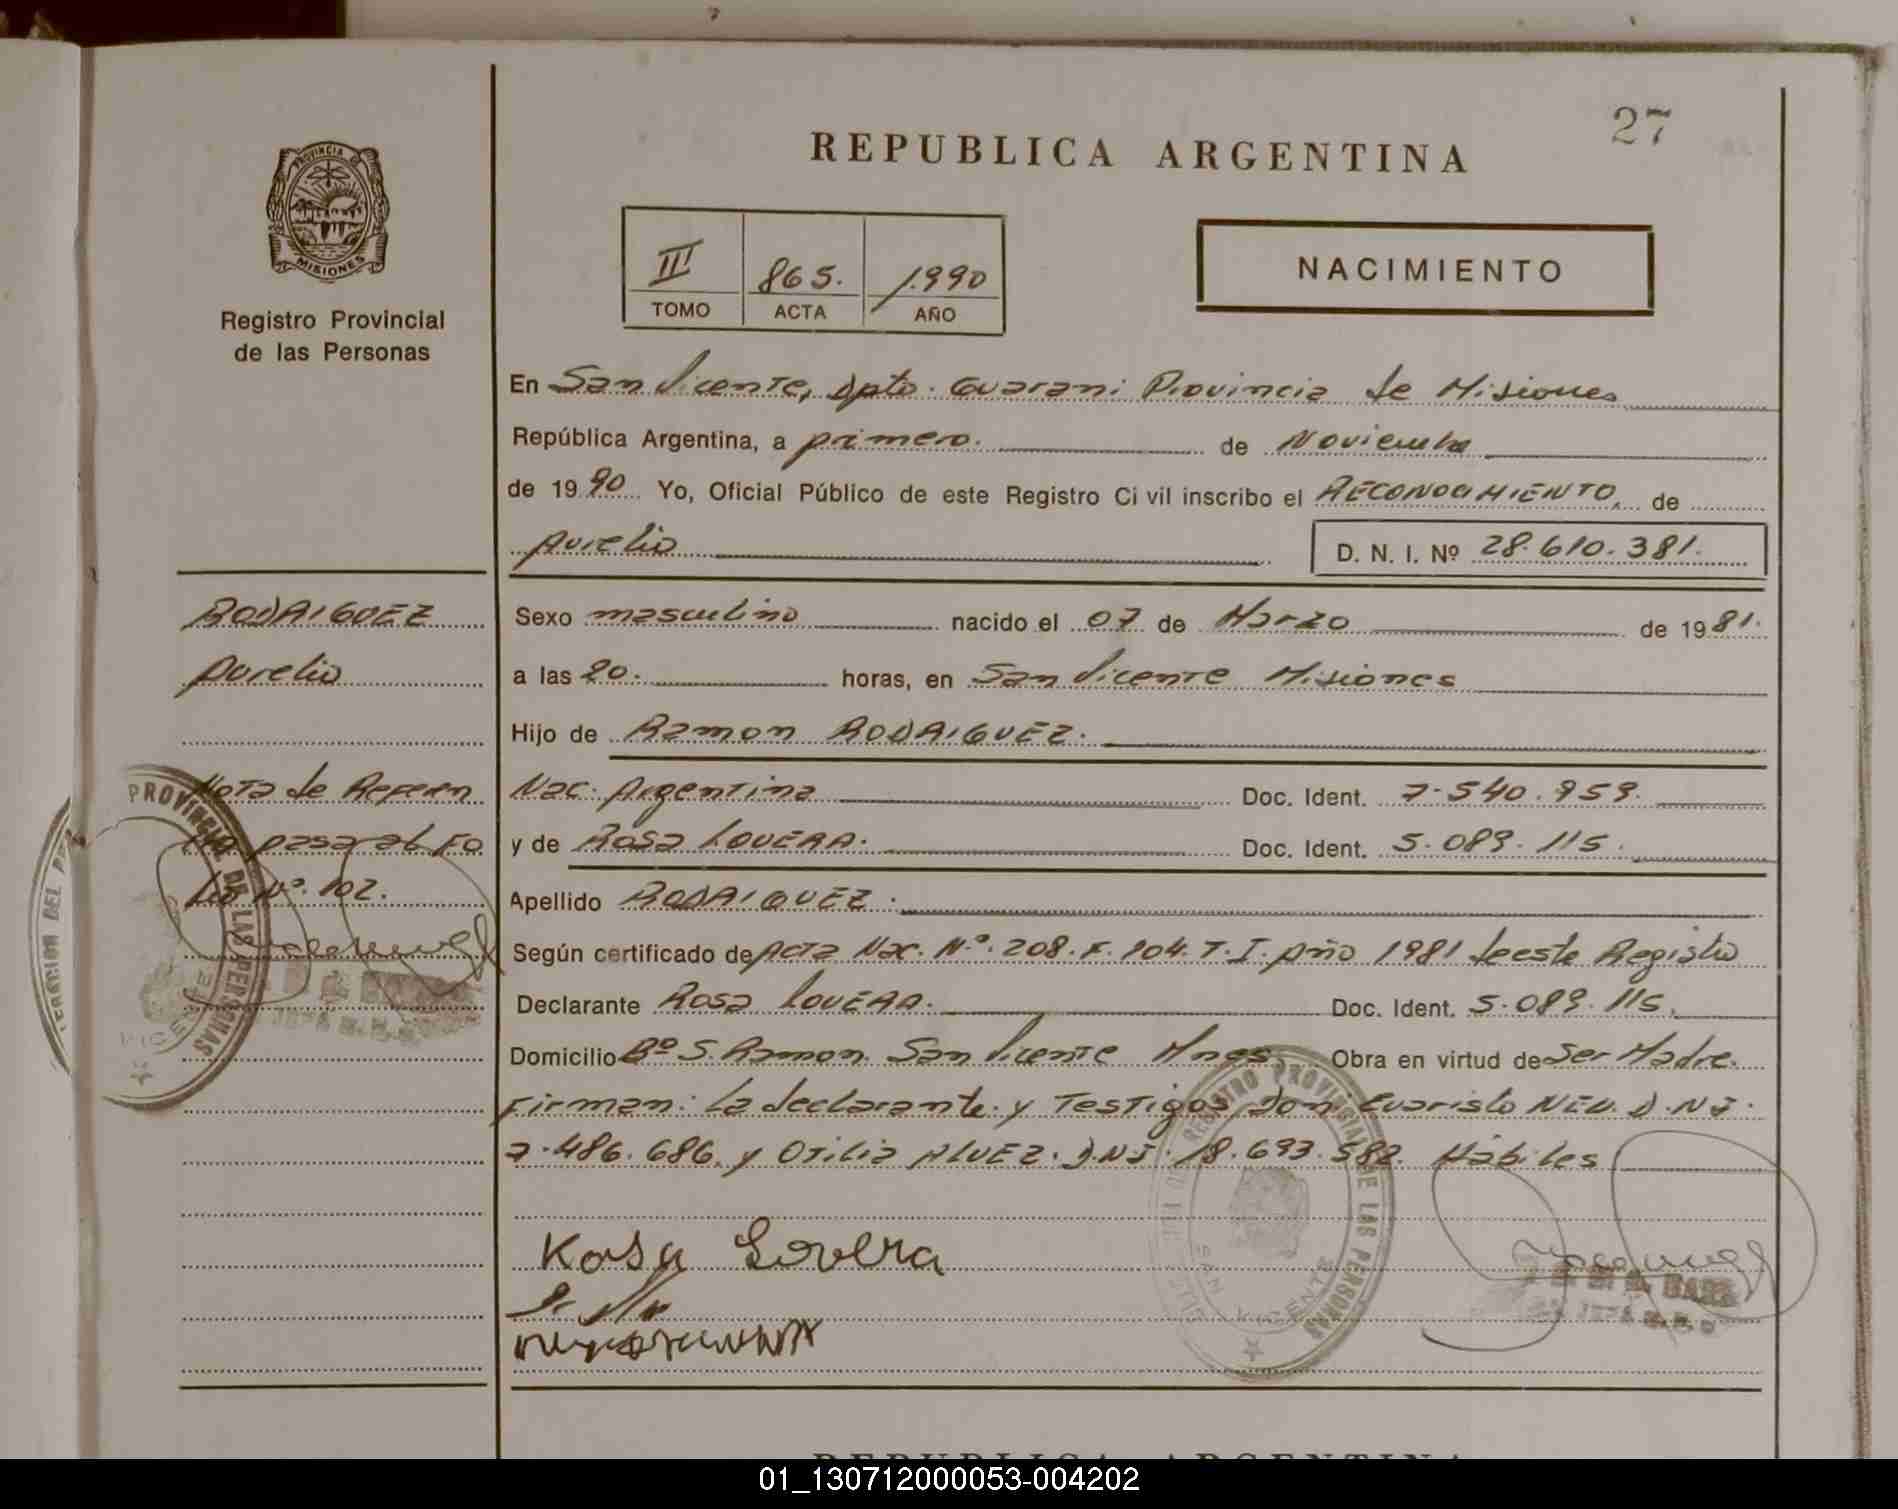 27
REPUBLICA ARGENTINA
PROVINCIA DE
MISIONES
Registro Provincial
de las Personas
III 865. 1.990
TOMO ACTA AÑO
NACIMIENTO
En San Vicente, Dpto. Guarani Provincia de Misiones
República Argentina, a primero. de Noviembre
de 1990 Yo, Oficial Público de este Registro Civil inscribo el RECONOCIMIENTO, de
Aurelio D. N. I. Nº 28.610.381.
RODRIGUEZ
Aurelio
Nota de Referen
cia pasa al Fo
lio Nº. 102.
Sexo masculino nacido el 07 de Marzo de 1981.
a las 20. horas, en San Vicente Misiones
Hijo de Ramon RODRIGUEZ.
Nac. Argentina Doc. Ident. 7.540.959.
y de Rosa LOVERA. Doc. Ident. 5.089.115.
Apellido RODRIGUEZ.
Según certificado de Acta Nac. Nº. 208. F. 104. T. I. Año 1981 de este Registro
Declarante Rosa LOVERA. Doc. Ident. 5.089.115.
Domicilio Bº S. Ramon San Vicente Mnes. Obra en virtud de Ser Madre.
Firman: La declarante y Testigos, Don: Evaristo NEU. D.NI.
7.486.686. y Otilia ALVEZ. D.NI. 18.693.582. Hábiles
Rosa Lovera
REGISTRO PROVINCIAL DE LAS PERSONAS
SAN VICENTE
PROVINCIAL DE LAS PERSONAS
VICENTE
REPUBLICA ARGENTINA
01_130712000053-004202